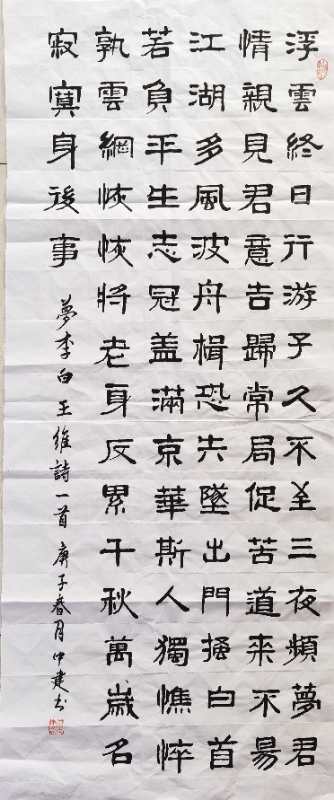 浮雲終日行游子久不至三夜頻夢君
情親見君意告歸常局促苦道来不易
江湖多風波舟楫恐失墜出門搔白首
若負平生志冠盖滿京華斯人獨憔悴
孰雲網恢恢将老身反累千秋萬歲名
寂寞身後事
夢李白王維詩一首 庚子春月仲建书